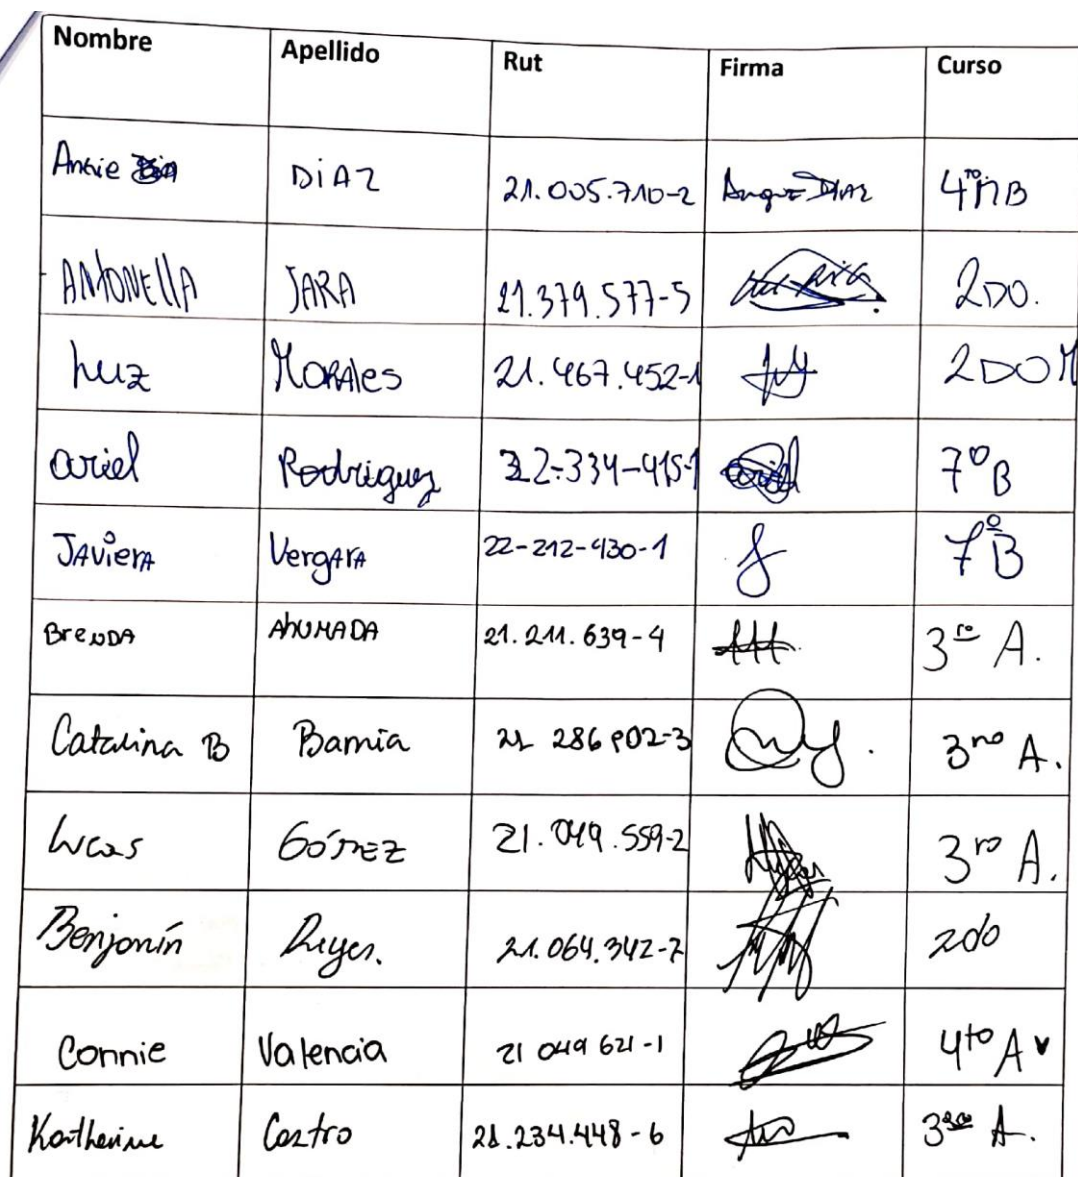 Nombre Apellido Rut Firma Curso
Angie DiAZ 21.005.710-2 Angie DIAZ 4to MB
ANtONEllA JARA 21.379.577-5 2DO.
Luz MORAles 21.467.452-1 2DO M
ariel Rodriguez 22-334-415-1 ariel 7º B
JAvierA VergArA 22-212-430-1 7º B
BreNDA AhUMADA 21.211.639-4 3ro A.
Catalina B Barria 21 286 902-3 3ro A.
Lucas GóMEZ 21.049.559-2 3ro A.
Benjamín Reyes. 21.064.342-7 2do
Connie Valencia 21 049 621-1 4to A
Katherine Castro 21.234.448-6 3ro A.